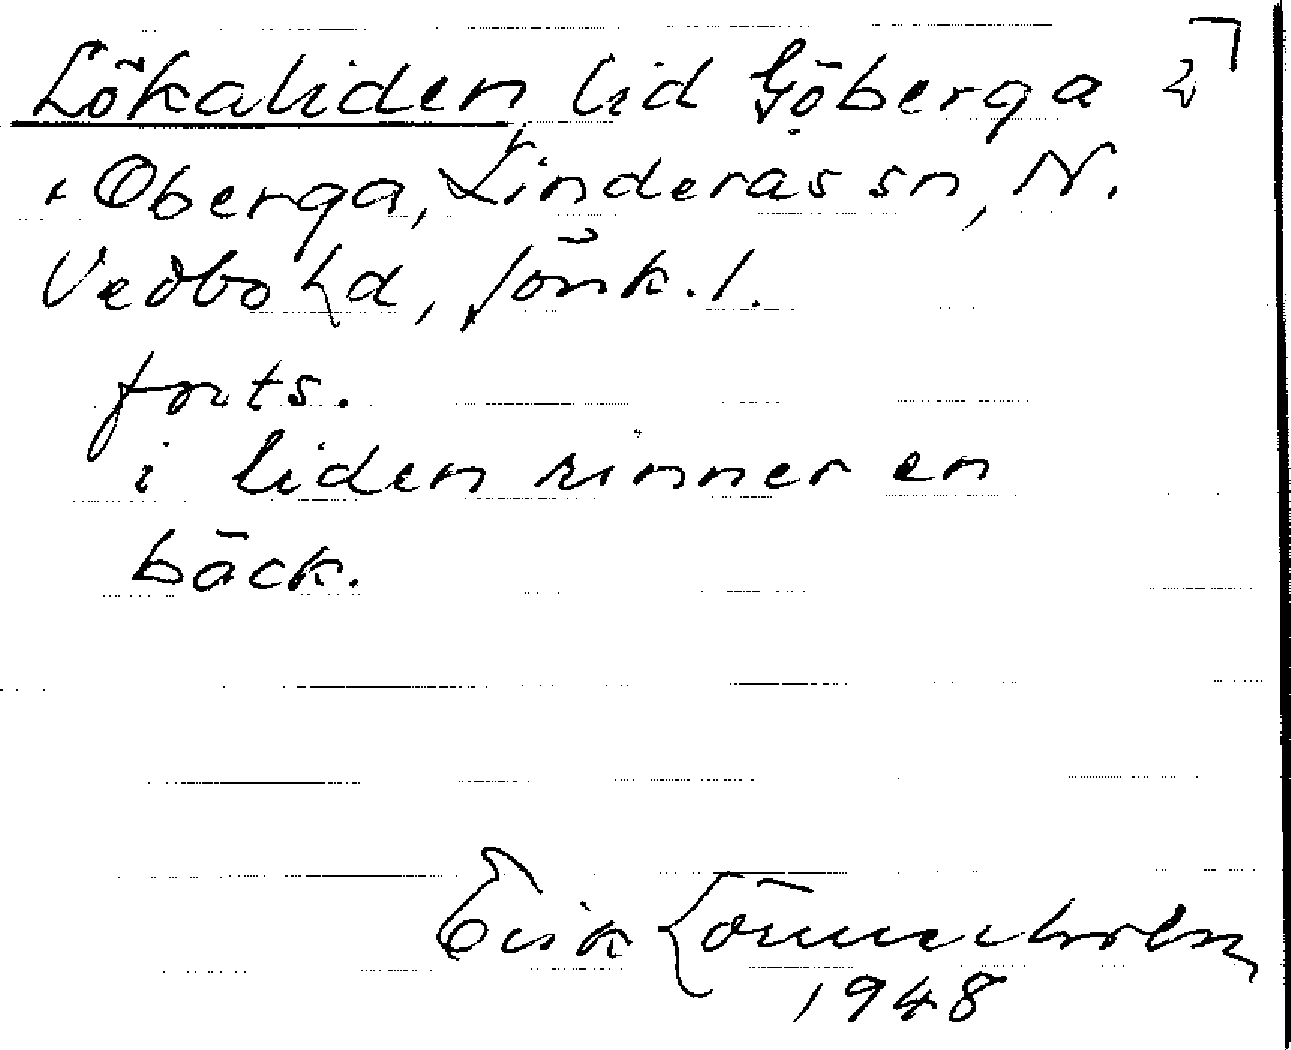 Lökaliden lid Göberga 2
o Oberga, Linderås sn, N.
Vedbo hd, Jönk. l.
forts.
i liden rinner en
bäck.
Erik Lönnerholm
1948